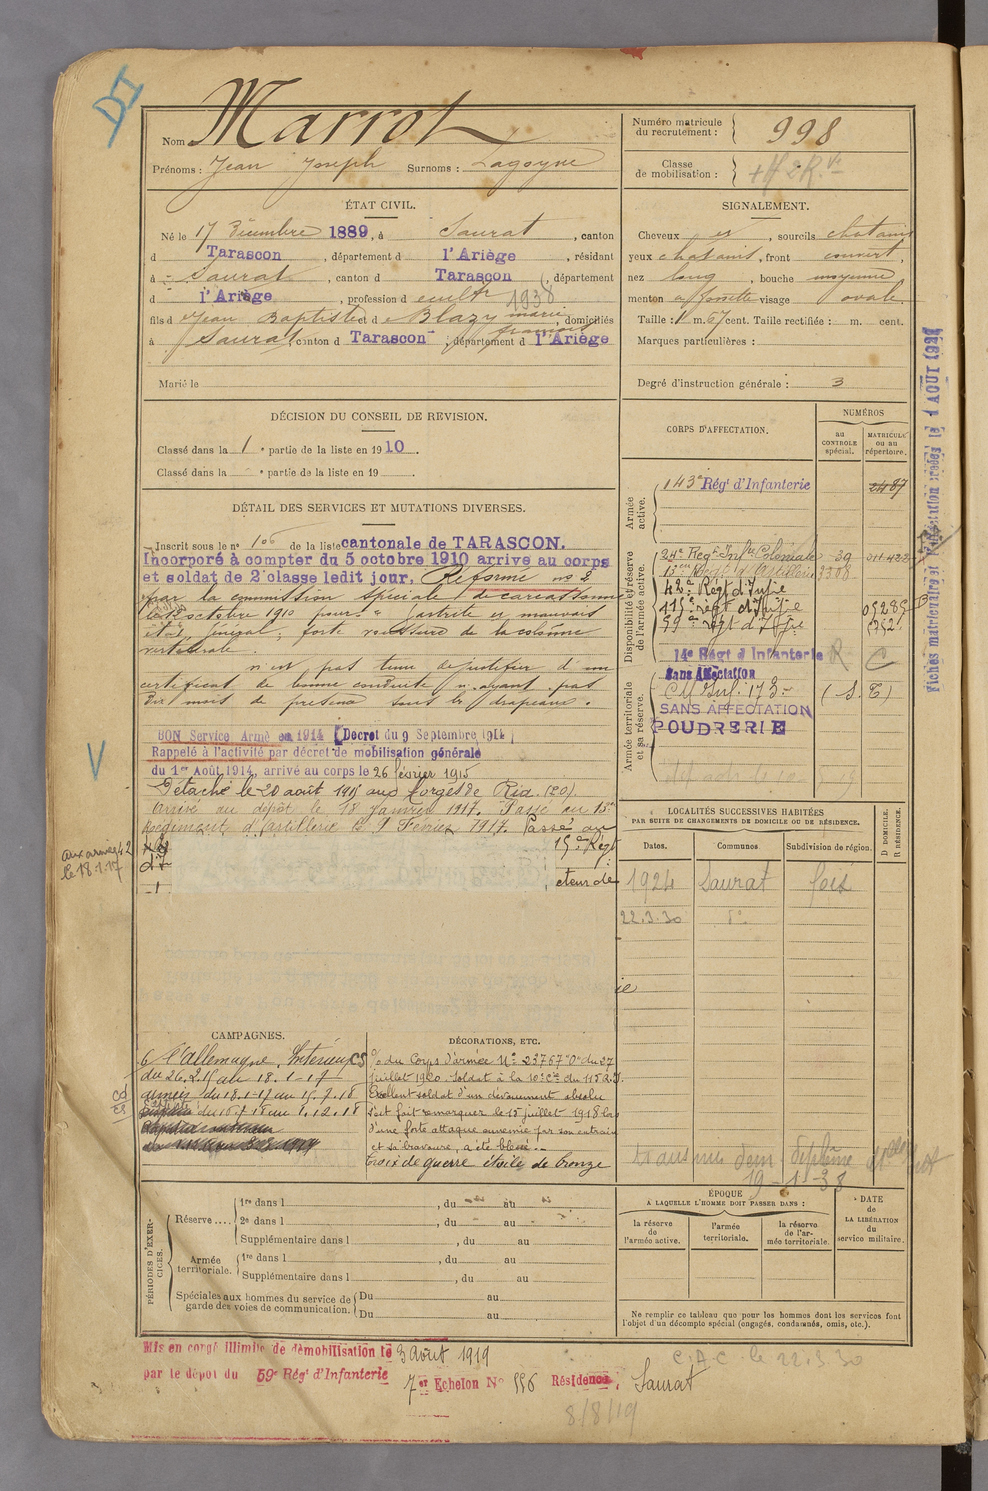 DI
Nom Marrot
Prénoms : Jean Joseph Surnoms : Lagoyne
Numéro matricule du recrutement : 998
Classe de mobilisation :
ÉTAT CIVIL.
Né le 17 Décembre 1889, à Saurat, canton
d Tarascon, département d l'Ariège, résidant
à Saurat, canton d Tarascon, département
d l'Ariège, profession d cultr 1938
fils d Jean Baptiste et d Blazy marie françoise, domiciliés
à Saurat, canton d Tarascon, département d l'Ariège
Marié le
SIGNALEMENT.
Cheveux et, sourcils chatains
yeux chatains, front couvert,
nez long, bouche moyenne
menton à fossette visage ovale.
Taille : 1 m. 67 cent. Taille rectifiée : m. cent.
Marques particulières :
Degré d'instruction générale : 3
DÉCISION DU CONSEIL DE REVISION.
Classé dans la 1e partie de la liste en 1910.
Classé dans la e partie de la liste en 19
DÉTAIL DES SERVICES ET MUTATIONS DIVERSES.
Inscrit sous le n° 106 de la liste cantonale de TARASCON.
Incorporé à compter du 5 octobre 1910 arrive au corps
et soldat de 2e classe ledit jour. Réformé no 2
par la commission spéciale de carcassonne
le 12 octobre 1910 pour " gastrite et mauvais
état général, forte voussure de la colonne
vertébrale.
n'est pas tenu de justifier d'un
certificat de bonne conduite n'ayant pas
dix mois de présence sous les drapeaux.
BON Service Armé en 1914 Décret du 9 Septembre 1914
Rappelé à l'activité par décret de mobilisation générale
du 1er Août 1914, arrivé au corps le 26 février 1915
Détaché le 20 août 1915 aux forges de Ria. (20).
Arrivé au dépôt le 18 janvier 1917. Passé au 15e
Régiment d'artillerie le 9 Février 1917. Passé au
15e Régt
cteur de
ie
V
aux armées 42
le 18.1.17
CORPS D'AFFECTATION.
NUMÉROS
au CONTROLE spécial.
MATRICULE ou au répertoire.
Armée active.
143e Régt d'Infanterie 2487
Disponibilité et réserve de l'armée active.
24e Regt Infie Coloniale 39
15me Regt d'Artillerie 3308
42e Régt d'Infie
115e régt d'Infie
59e régt d'Infie
14e Régt d'Infanterie R C
Sans Affectation
Armée territoriale et sa réserve.
CM Inf. 173 - (S. T)
SANS AFFECTATION
POUDRERIE
Fiches matriculaire et
AOUT
LOCALITÉS SUCCESSIVES HABITÉES
PAR SUITE DE CHANGEMENTS DE DOMICILE OU DE RÉSIDENCE.
Dates. Communes. Subdivision de région. D DOMICILE. R RÉSIDENCE.
1924 Saurat foix
22.3.30 d°
CAMPAGNES.
C/ L'allemagne. Intérieur CS
du 26.2.15 au 18.1-17
armées du 18.1-17 au 15.7.18
du 16.7.18 au 1.12.18
DÉCORATIONS, ETC.
% du Corps d'armée N° 23767 "O" du 27
juillet 1920. Soldat à la 10e Cie du 115 R.I.
Excellent soldat d'un dévouement absolu
s'est fait remarquer le 15 juillet 1918 lors
d'une forte attaque ennemie par son entrain
et sa bravoure, a été blessé.-
Croix de guerre étoile de bronze
19-1-38
PÉRIODES D'EXERCICES.
Réserve....
1re dans l , du au
2e dans l , du au
Supplémentaire dans l , du au
Armée territoriale.
1re dans l , du au
Supplémentaire dans l , du au
Spéciales aux hommes du service de garde des voies de communication.
Du au
Du au
ÉPOQUE
A LAQUELLE L'HOMME DOIT PASSER DANS :
la réserve de l'armée active.
l'armée territoriale.
la réserve de l'armée territoriale.
DATE de LA LIBÉRATION du service militaire.
Ne remplir ce tableau que pour les hommes dont les services font
l'objet d'un décompte spécial (engagés, condamnés, omis, etc.).
Mis en congé illimité de démobilisation le 3 août 1919
par le dépot du 59e Rég' d'Infanterie
7er Echelon N° 556 Résidence : Saurat
C.A.C. le 22.3.30
8/8/19